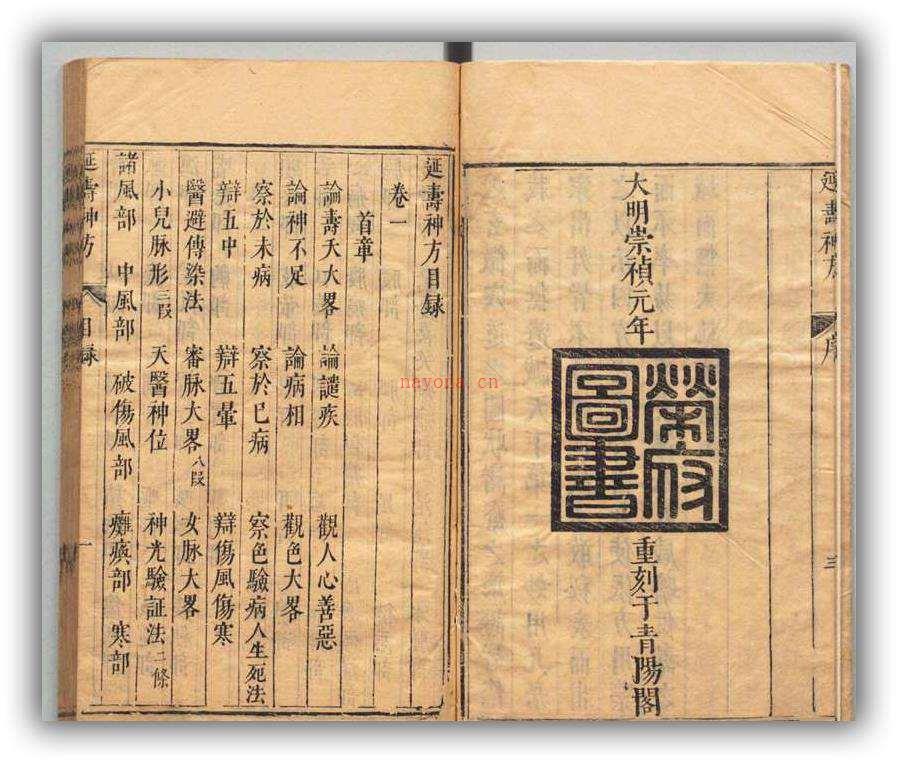 延壽神方
序
三
大明崇禎元年
榮府圖書
重刻于青陽閣
延壽神方目録
卷一
首章
論壽夭大畧 論譴疾 觀人心善惡
論神不足 論病相 觀色大畧
察於未病 察於已病 察色驗病人生死法
辯五中 辯五暈 辯傷風傷寒
醫避傳染法 審脉大畧八段 女脉大畧
小兒脉形二段 天醫神位 神光驗証法二條
諸風部 中風部 破傷風部 癱瘓部 寒部
延壽神方
目録
一
nayona.cn